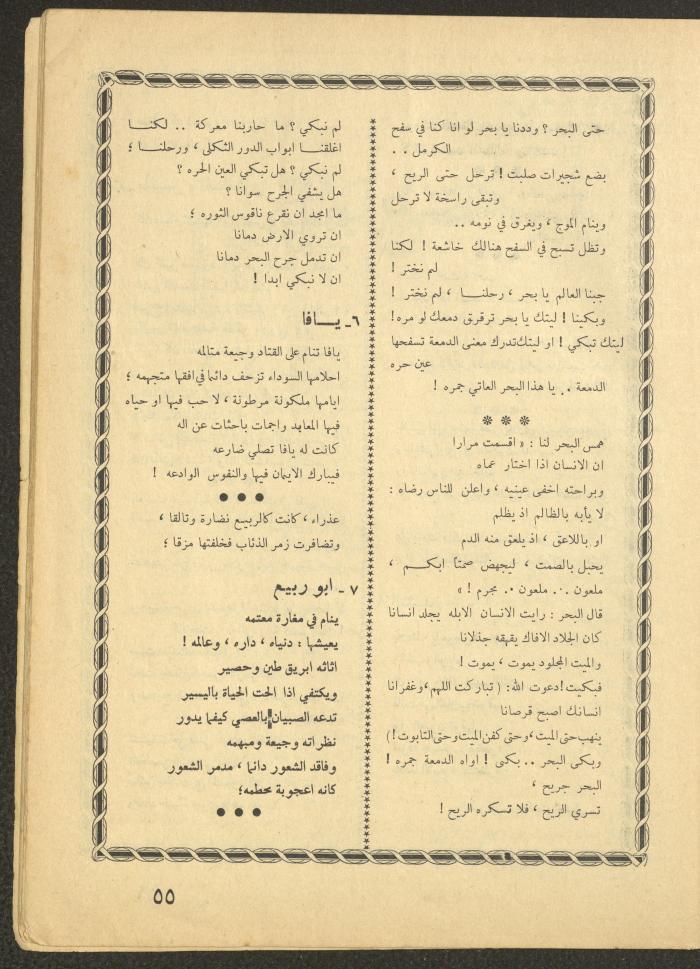 حتى البحر ؟ وددنا يا بحر لو انا كنا في سفح
الكرمل . .
بضع شجيرات صلبت ! ترحل حتى الريح ،
وتبقى راسخة لا ترحل
وينام الموج ، ويغرق في نومه ..
وتظل تسبح في السفح هنالك خاشعة ! لكنا
لم نختر !
جبنا العالم يا بحر ، رحلنـــا ، لم نختر !
وبكينا ! ليتك يا بحر ترقرق دمعك لو مره !
ليتك تبكي ! او ليتك تدرك معنى الدمعة تسفحها
عين حره
الدمعة .. يا هذا البحر العاتي جمره !
* * *
همس البحر لنا : « اقسمت مرارا
ان الانسان اذا اختار عماه
وبراحته اخفى عينيه ، واعلن للناس رضاه :
لا يأبه بالظالم اذ يظلم
او باللاعق ، اذ يلعق منه الدم
يحبل بالصمت ، ليجهض صمتاً ابكـــم ،
ملعون .. ملعون .. مجرم ! »
قال البحر : رايت الانسان الابله يجلد انسانا
كان الجلاد الافاك يقهقه جذلانا
والميت المجلود يموت ، يموت !
فبكيت ! دعوت الله: ( تباركت اللهم، وغفرانا
انسانك اصبح قرصانا
ينهب حتى الميت، وحتى كفن الميت وحتى التابوت ! )
وبكى البحر .. بكى ! اواه الدمعة جمره !
البحر جريح ،
تسري الريح ، فلا تسكره الريح !
لم نبكي ؟ ما حاربنا معركة .. لكنـــا
اغلقنـــا ابواب الدور الثكلى ، ورحلنـــا ؛
لم نبكي ؟ هل تبكي العين الحره ؟
هل يشفي الجرح سوانا ؟
ما امجد ان نقرع ناقوس الثوره ؛
ان تروي الارض دمانا
ان تدمل جرح البحر دمانا
ان لا نبكي ابدا !
٦ـ يـــافا
يافا تنام على القتاد وجيعة متالمه
احلامها السوداء تزحف دائما في افقها متجهمه ؛
ايامها ملكونة مرطونة ، لا حب فيها او حياه
فيها المعابد واجمات باحثات عن اله
كانت له يافا تصلي ضارعه
فيبارك الايمان فيها والنفوس الوادعه !
● ● ●
عذراء ، كانت كالربيع نضارة وتالقا ،
وتضافرت زمر الذئاب فخلفتها مزقا ؛
٧ ـ ابو ربيع
ينام في مغارة معتمه
يعيشها : دنياه ، داره ، وعالمه !
اثاثه ابريق طين وحصير
ويكتفي اذا الحت الحياة باليسير
تدعه الصبيان بالعصي كيفما يدور
نظراته وجيعة ومبهمه
وفاقد الشعور دائما ، مدمر الشعور
كانه اعجوبة محطمه؛
● ● ●
٥٥